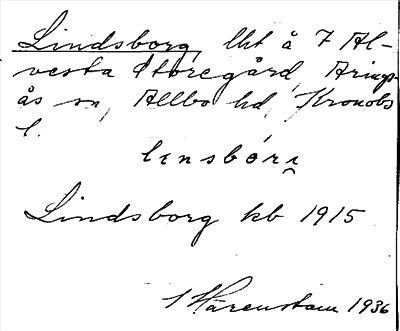 Lindsborg, lht å 7 Al-
vesta Storegård, Arings-
ås sn, Allbo hd, Kronobs
l.
lensbǫrį
Lindsborg kb 1915
S Härenstam 1936